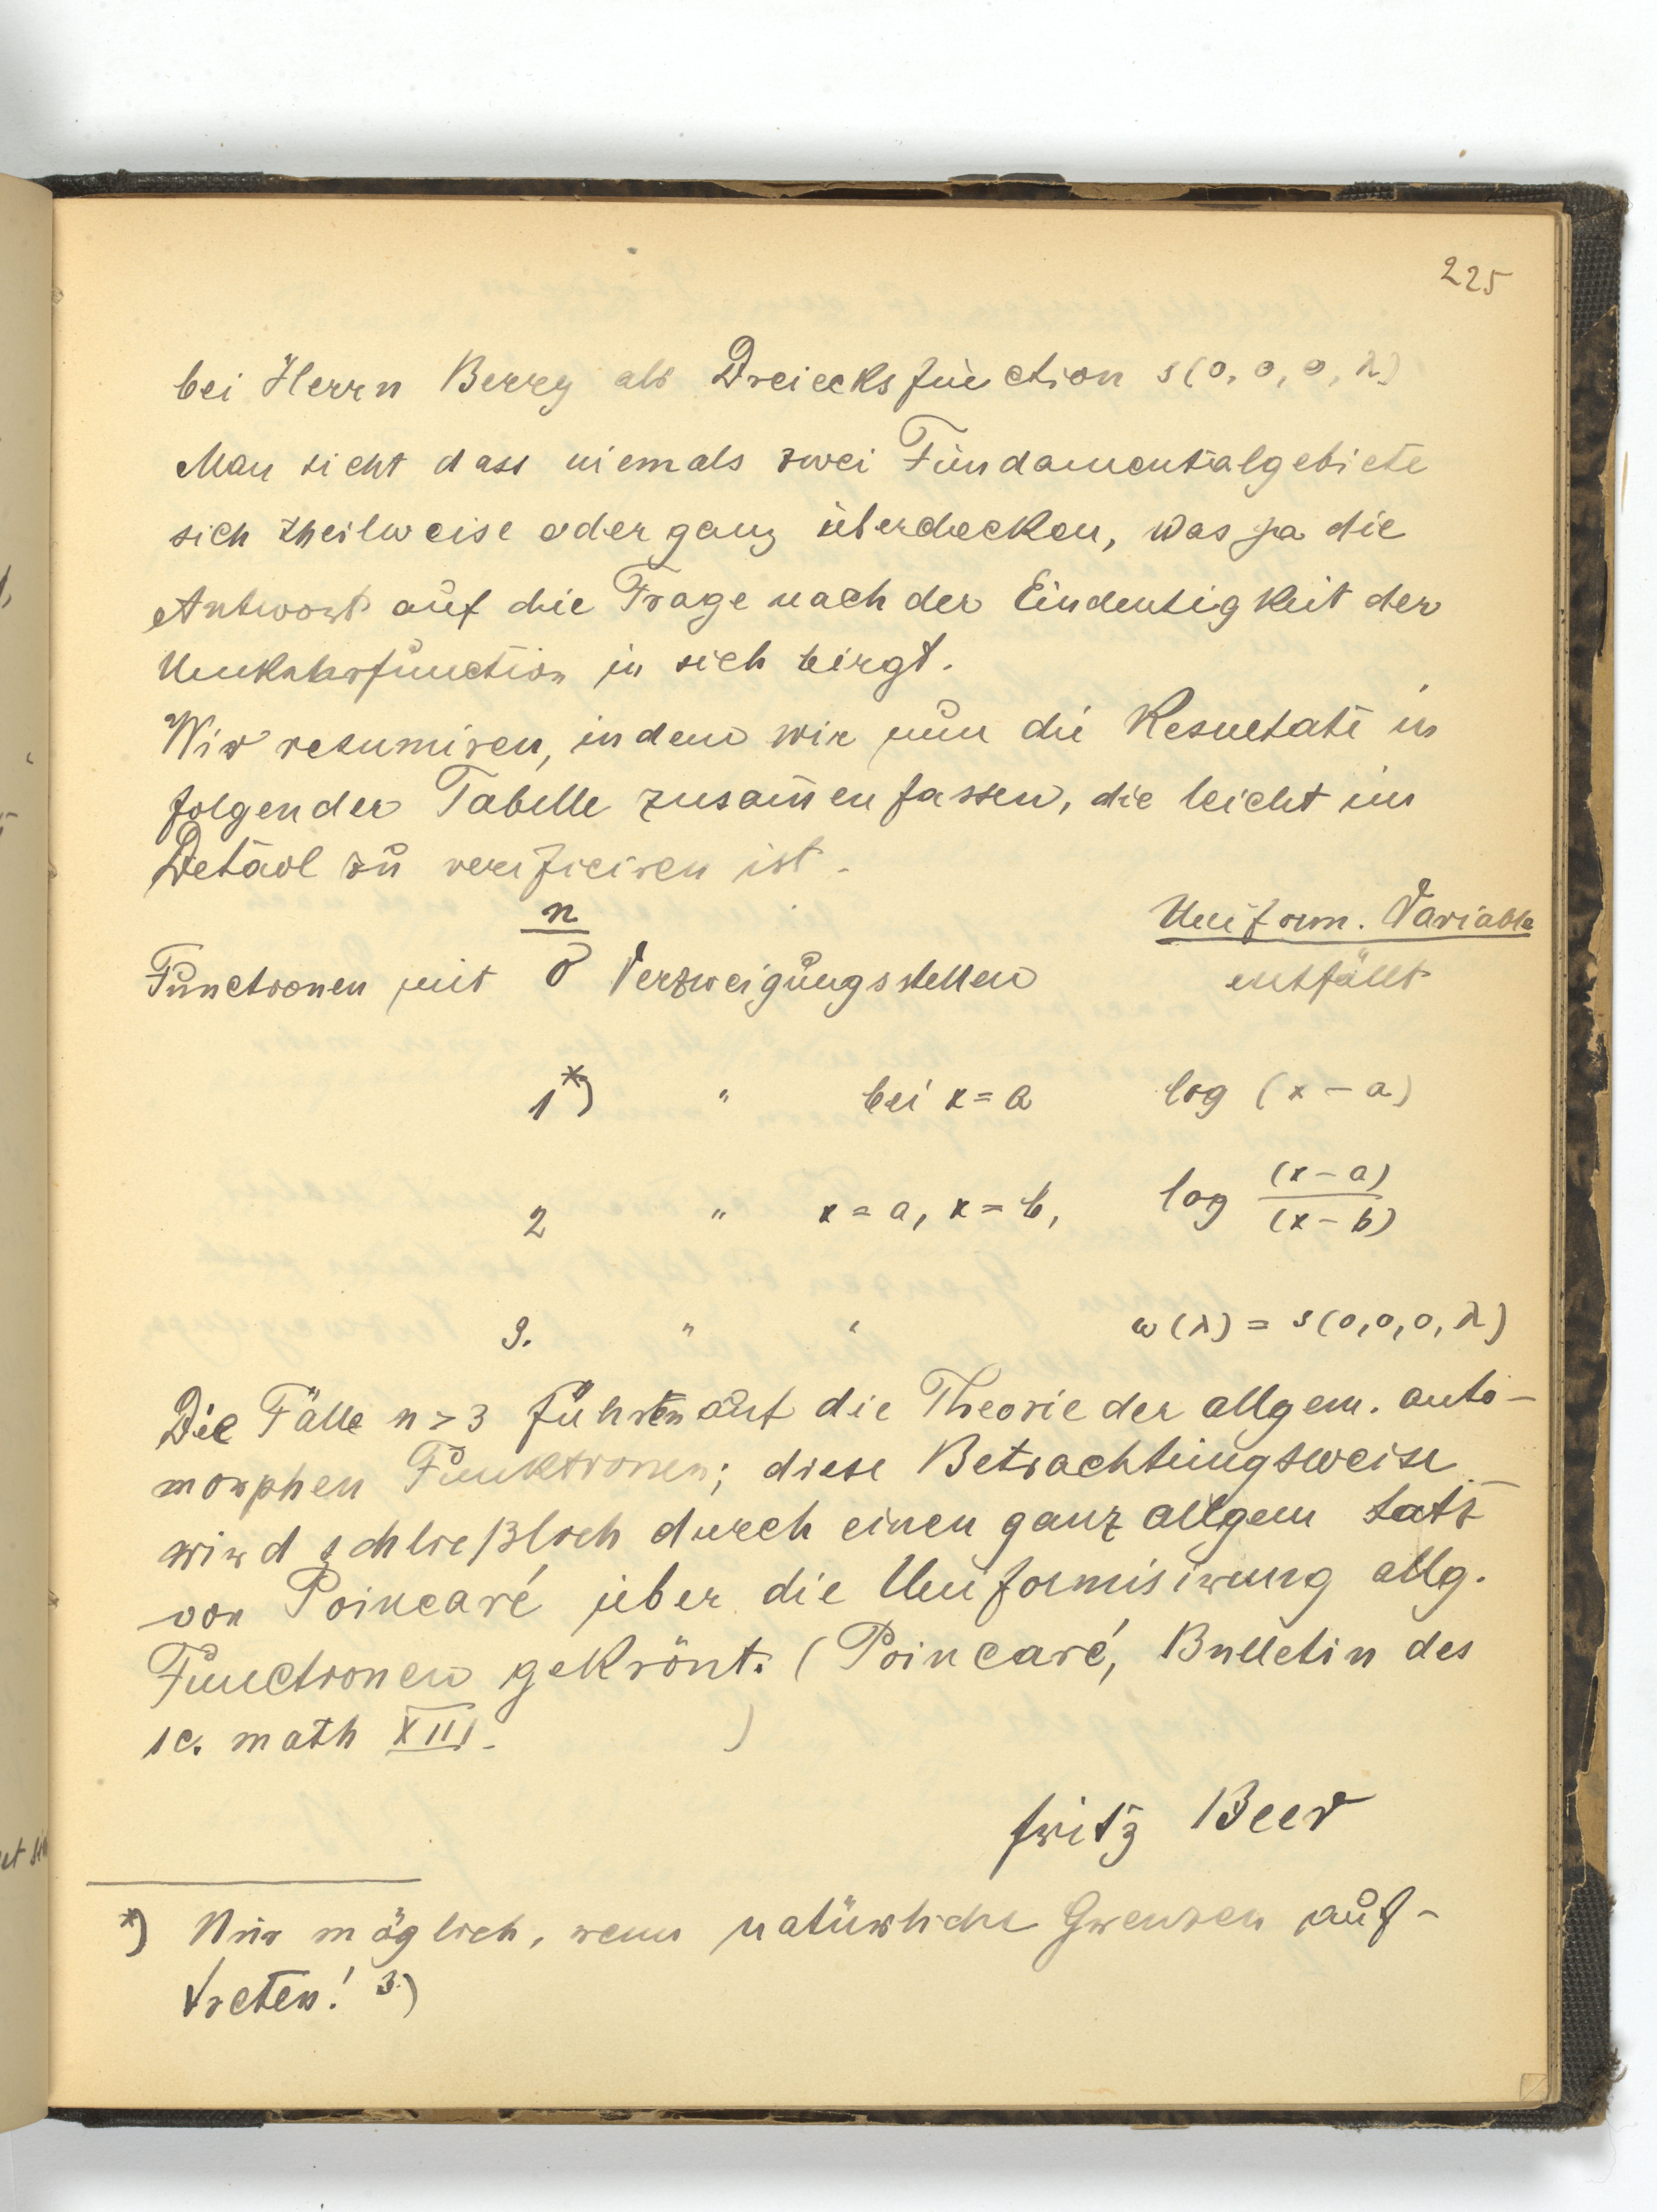 225
bei Herrn Berry als Dreiecksfunction s(0, 0, 0, λ)
Man sieht dass niemals zwei Fundamentalgebiete
sich theilweise oder ganz überdecken, was ja die
Antwort auf die Frage nach der Eindeutigkeit der
Umkehrfunction in sich birgt.
Wir resumiren, indem wir nun die Resultate in
folgender Tabelle zusam̅en fassen, die leicht im
Detail zu verificiren ist.
n Uniform. Variable
Functionen mit 0 Verzweigungsstellen entfällt
1*) " bei x = a log (x − a)
2 " x = a, x = b, log (x − a)/(x − b)
3. " " ω(λ) = s(0,0,0, λ)
Die Fälle n > 3 führen auf die Theorie der allgem. auto-
morphen Funktionen; diese Betrachtungsweise
wird schließlich durch einen ganz allgem Satz
von Poincaré über die Uniformisirung allg.
Functionen gekrönt. (Poincaré, Bulletin des
sc. math XIII. )
Fritz Beer
*) Nur möglich, wenn natürliche Grenzen auf-
treten! 3.)